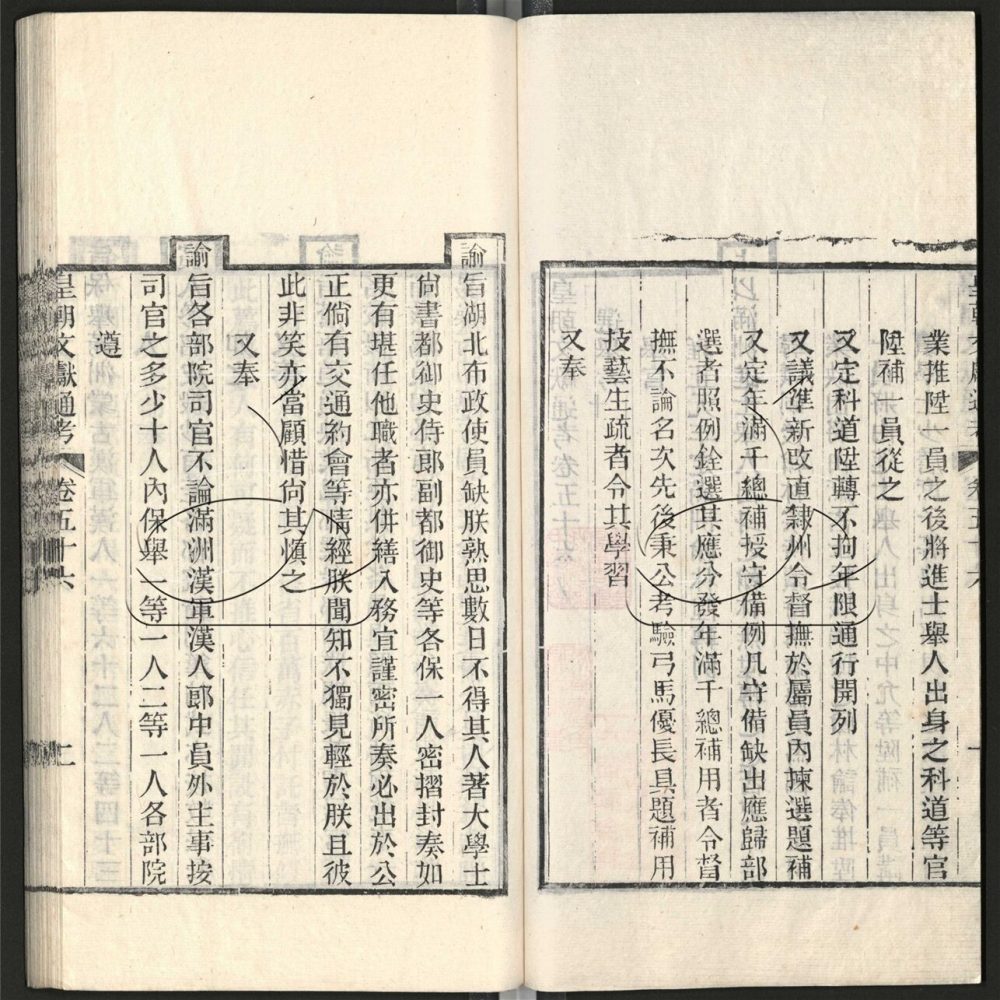 業推陞一員之後將進士舉人出身之科道等官
陞補一員從之
又定科道陞轉不拘年限通行開列
又議準新改直隸州令督撫於屬員內揀選題補
又定年滿千總補授守備例凡守備缺出應歸部
選者照例銓選其應分發年滿千總補用者令督
撫不論名次先後秉公考驗弓馬優長具題補用
技藝生疏者令其學習
又奉
諭旨湖北布政使員缺朕熟思數日不得其人著大學士
尙書都御史侍郎副都御史等各保一人密摺封奏如
更有堪任他職者亦倂繕入務宜謹密所奏必出於公
正倘有交通約會等情經朕聞知不獨見輕於朕且彼
此非笑亦當顧惜尙其愼之
又奉
諭旨各部院司官不論滿洲漢軍漢人郎中員外主事按
司官之多少十人內保舉一等一人二等一人各部院
遵
皇朝文獻通考 卷五十六 二